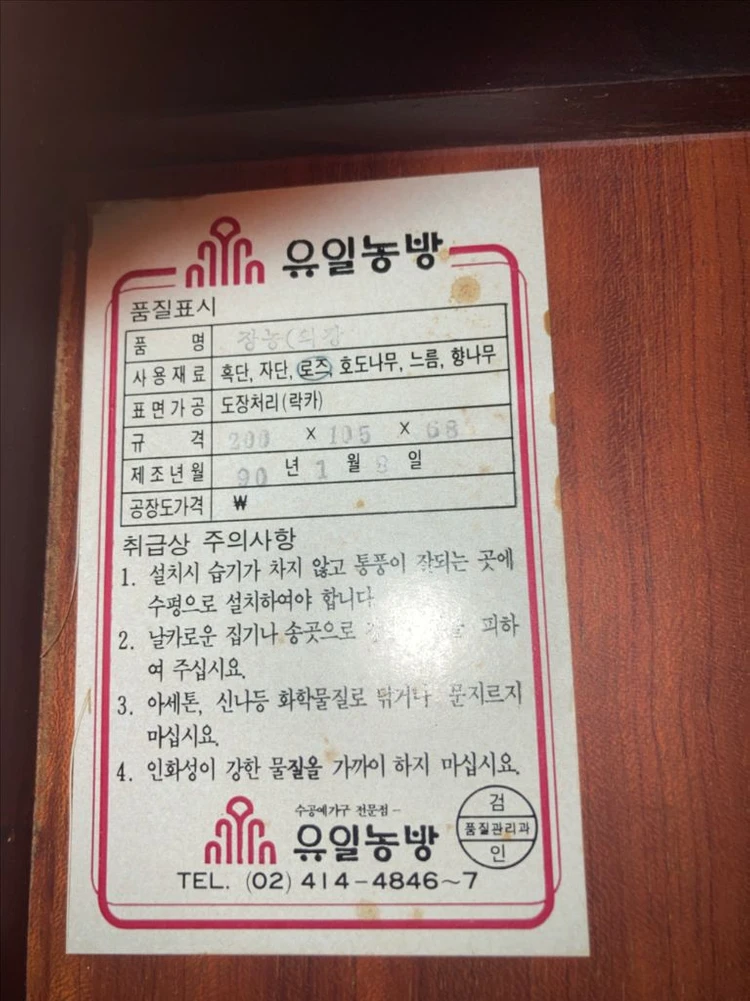 유일농방
품질표시
품 명 장농(의장
사용재료 흑단, 자단, 로즈, 호도나무, 느름, 향나무
표면가공 도장처리(락카)
규 격 200 X 105 X 68
제조년월 90 년 1 월 8 일
공장도가격 ₩
취급상 주의사항
1. 설치시 습기가 차지 않고 통풍이 잘되는 곳에
수평으로 설치하여야 합니다
2. 날카로운 집기나 송곳으로 피하
여 주십시요.
3. 아세톤, 신나등 화학물질로 닦거나 문지르지
마십시요.
4. 인화성이 강한 물질을 가까이 하지 마십시요.
수공예가구 전문점 –
유일농방
검
품질관리과
인
TEL. (02) 414-4846~7